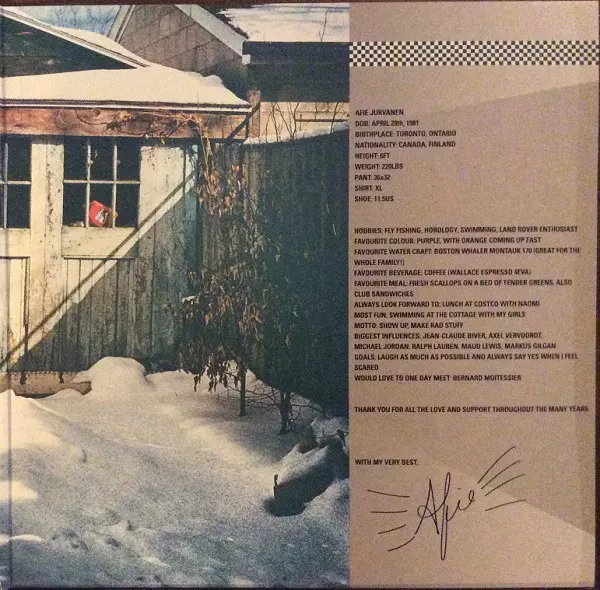 AFIE JURVANEN
DOB: APRIL 28th, 1981
BIRTHPLACE: TORONTO, ONTARIO
NATIONALITY: CANADA, FINLAND
HEIGHT: 6FT
WEIGHT: 220LBS
PANT: 36x32
SHIRT: XL
SHOE: 11.5US
HOBBIES: FLY FISHING, HOROLOGY, SWIMMING, LAND ROVER ENTHUSIAST
FAVOURITE COLOUR: PURPLE, WITH ORANGE COMING UP FAST
FAVOURITE WATER CRAFT: BOSTON WHALER MONTAUK 170 (GREAT FOR THE
WHOLE FAMILY!)
FAVOURITE BEVERAGE: COFFEE (WALLACE ESPRESSO 4EVA)
FAVOURITE MEAL: FRESH SCALLOPS ON A BED OF TENDER GREENS, ALSO
CLUB SANDWICHES
ALWAYS LOOK FORWARD TO: LUNCH AT COSTCO WITH NAOMI
MOST FUN: SWIMMING AT THE COTTAGE WITH MY GIRLS
MOTTO: SHOW UP, MAKE RAD STUFF
BIGGEST INFLUENCES: JEAN-CLAUDE BIVER, AXEL VERVOORDT,
MICHAEL JORDAN, RALPH LAUREN, MAUD LEWIS, MARKUS GILGAN
GOALS: LAUGH AS MUCH AS POSSIBLE AND ALWAYS SAY YES WHEN I FEEL
SCARED
WOULD LOVE TO ONE DAY MEET: BERNARD MOITESSIER
THANK YOU FOR ALL THE LOVE AND SUPPORT THROUGHOUT THE MANY YEARS
WITH MY VERY BEST,
Afie